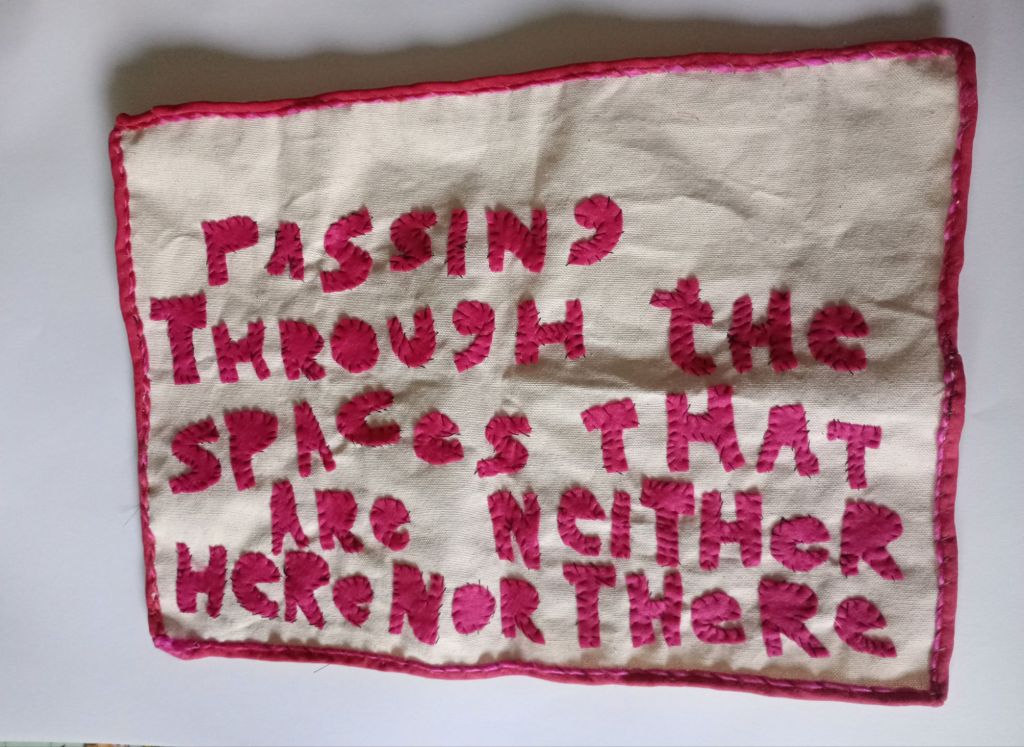 PASSINg
THROUgH tHe
SPACeS THAT
ARe NeITHeR
HeRe NOR THeRe